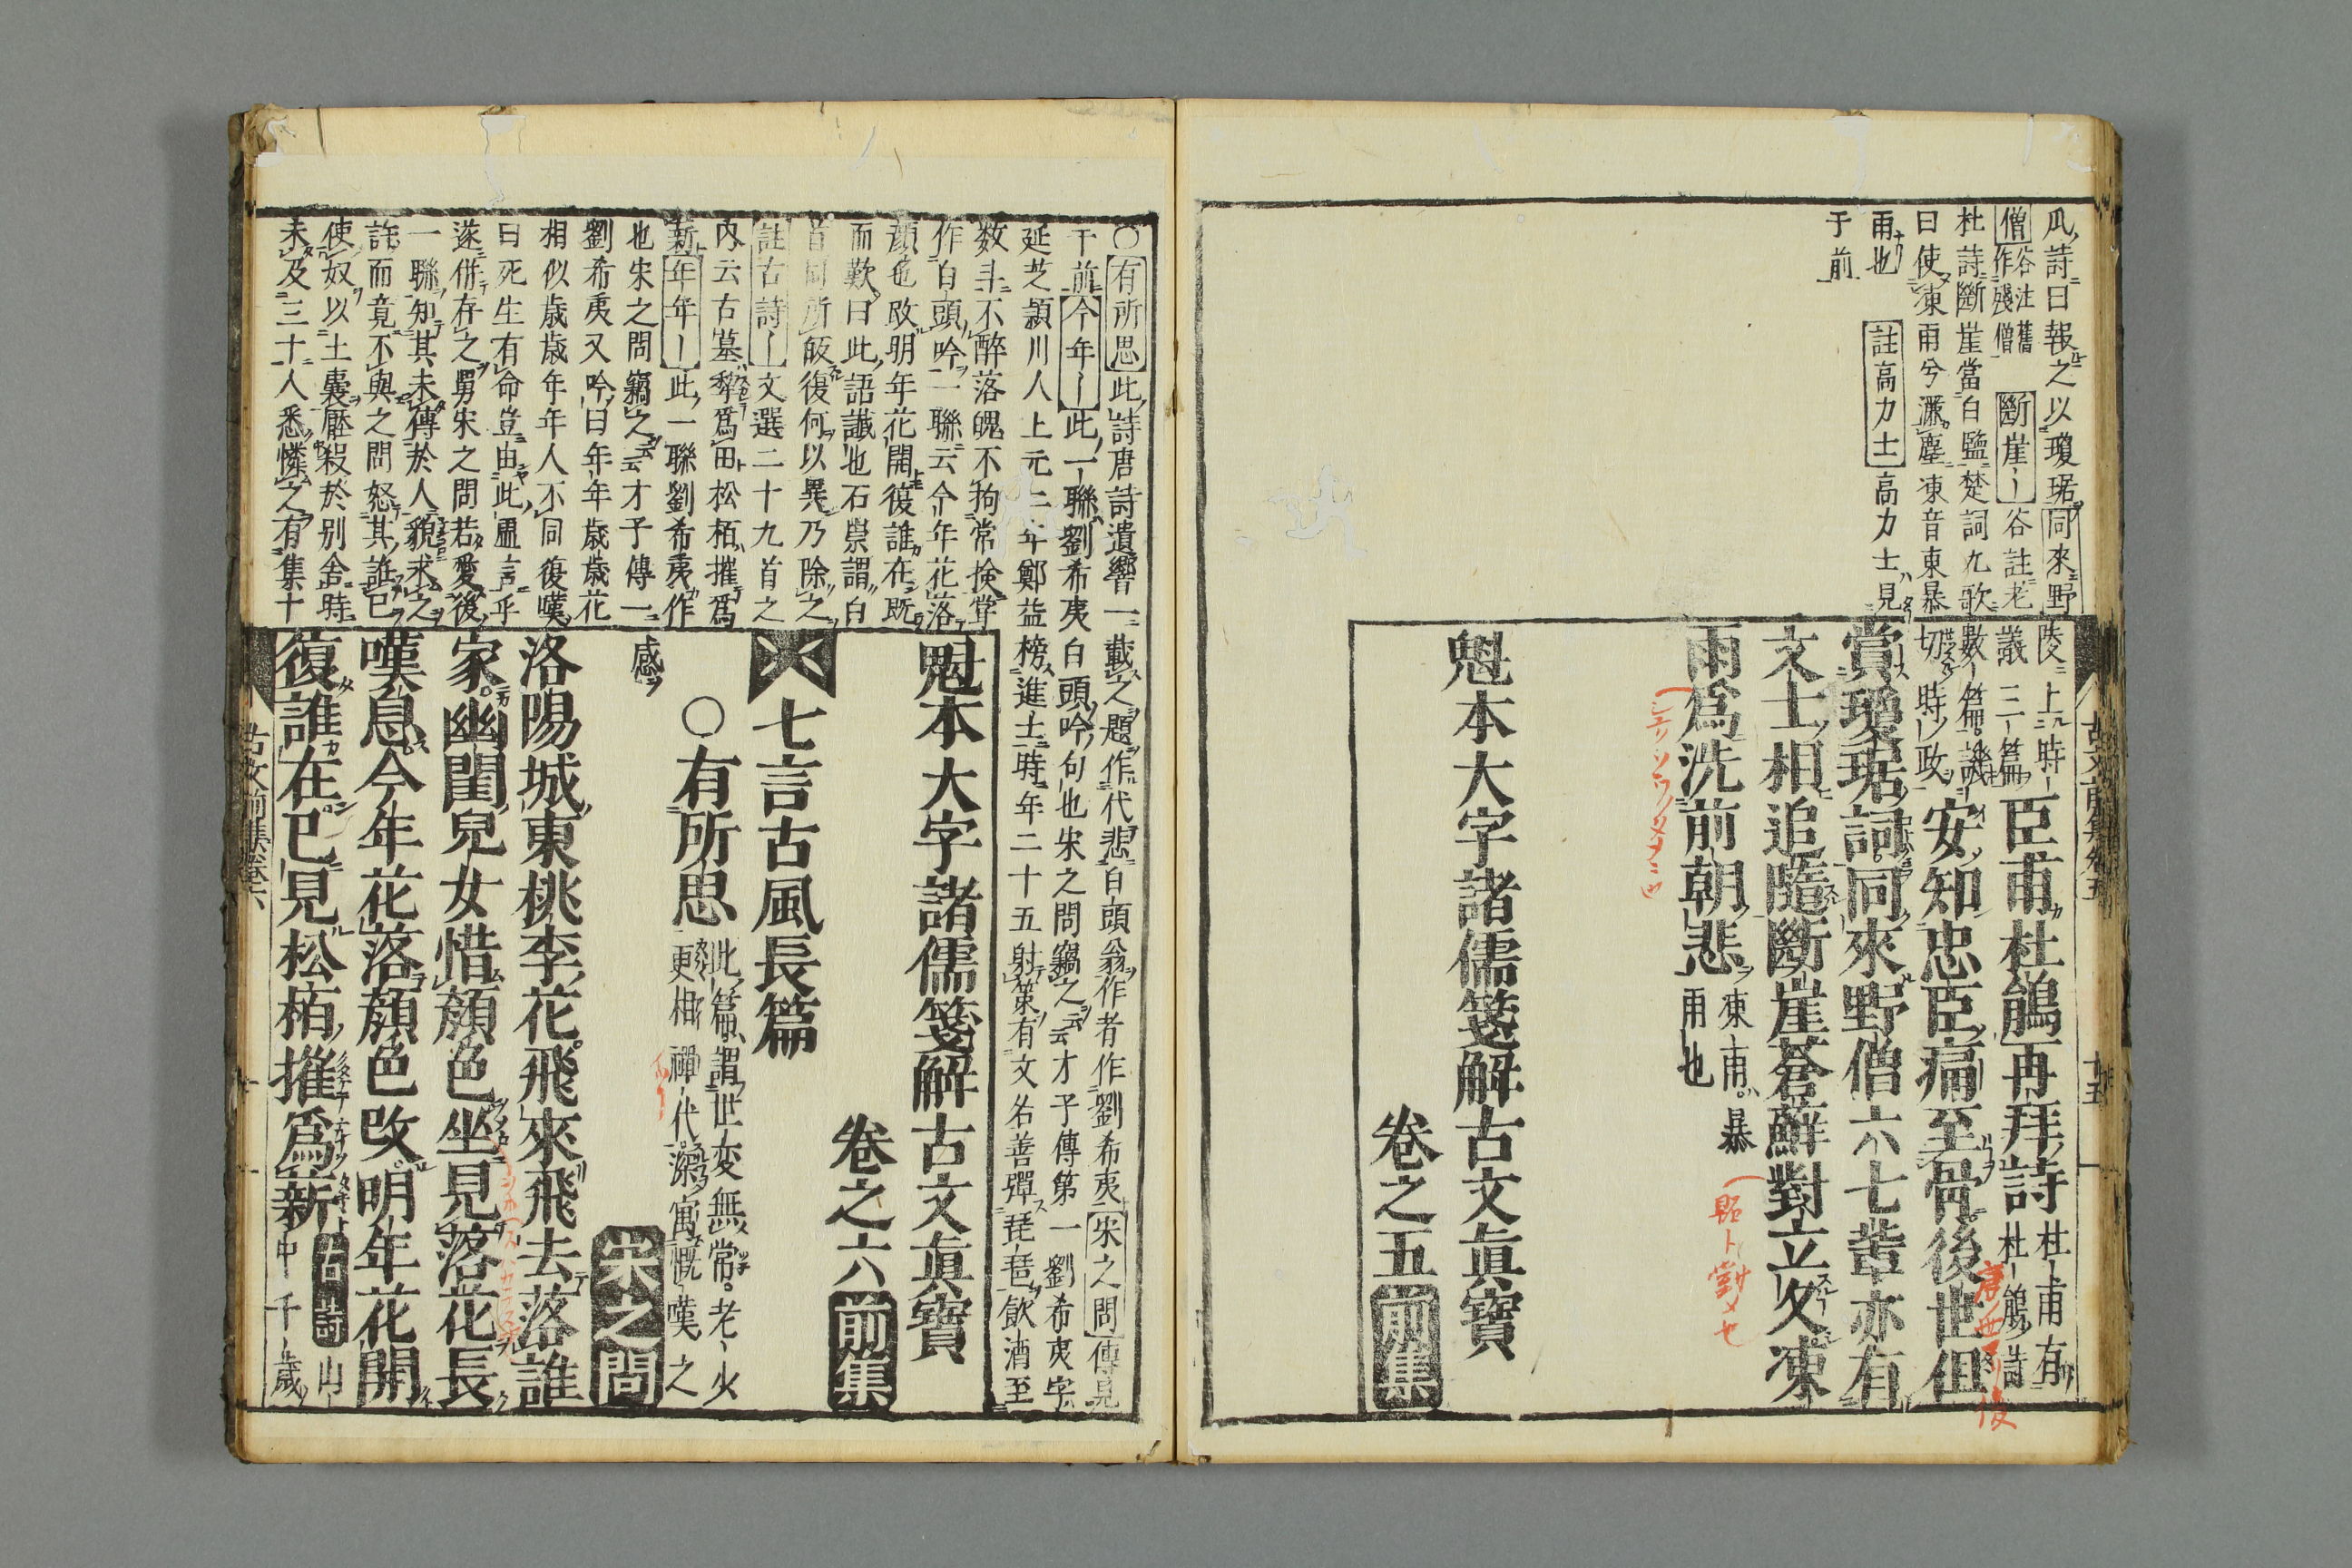 瓜詩曰報之以瓊琚同來野
僧谷注舊作殘僧 斷崖〡谷註老
杜詩斷崖當白鹽楚詞九歌
曰使凍雨兮灑塵凍音東暴
雨也 註高力士高力士見
于前
陵上時〡臣甫杜鵑再拜詩杜甫有杜鵑詩
議三篇
數篇譏
切時政安知忠臣痛至骨後世但
賞瓊琚詞同來野僧六七輩亦有
文士相追隨斷崖蒼蘚對立久凍
雨爲洗前朝悲凍雨暴雨也
魁本大字諸儒箋解古文眞寶
卷之五 前集
古文前集卷五 十五
○有所思此詩唐詩遺響一載之題作代悲白頭翁作者作劉希夷 宋之問傳見
于前 今年〡此一聯劉希夷白頭吟句也宋之問竊之云云才子傳第一劉希夷字
延芝潁川人上元二年鄭益榜進士時年二十五射策有文名善彈琵琶飮酒至
数斗不醉落魄不拘常撿嘗
作白頭吟一聯云今年花落
顔色改明年花開復誰在既
而歎曰此語讖也石崇謂白
首同所皈復何以異乃除之
註古詩〡文選二十九首之
内云古墓犂爲田松栢摧爲
新 年年〡此一聯劉希夷作
也宋之問竊之云云才子傳一
劉希夷又吟曰年年歳歳花
相似歳歳年年人不同復嘆
曰死生有命豈由此虛言乎
遂併存之舅宋之問若愛後
一聯知其未傳於人貌求之
許而竟不與之問怒其誑已
使奴以土囊壓殺於别舎時
未及三十人悉憐之有集十
魁本大字諸儒箋解古文眞寶
卷之六 前集
七言古風長篇
○有所思此篇謂世変無常老少更相禪代深寓慨嘆之
感 宋之問
洛陽城東桃李花飛來飛去落誰
家幽閨兒女惜顔色坐見落花長
嘆息今年花落顔色改明年花開
復誰在已見松栢摧爲薪古詩山中千歳
古文前集卷六 一